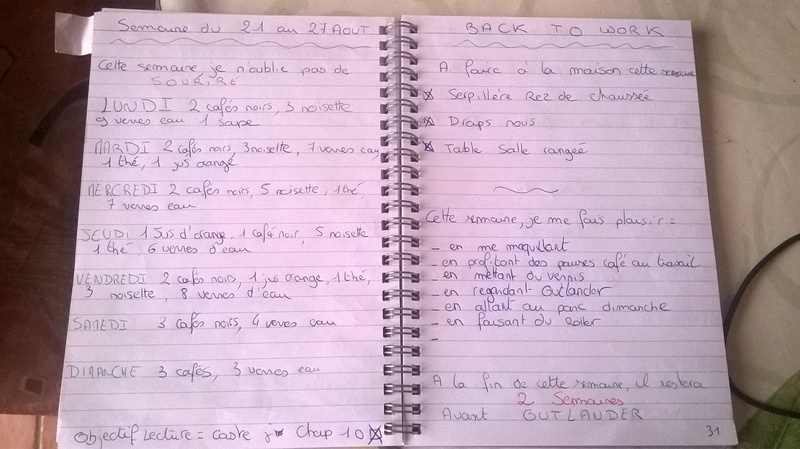 Semaine du 21 au 27 AOUT
Cette semaine je n'oublie pas de
SOURIRE
LUNDI 2 cafés noirs, 3 noisette
9 verres eau 1 soupe
MARDI 2 cafés noirs, 3 noisette, 7 verres eau
1 thé, 1 jus orange
MERCREDI 2 cafés noirs, 5 noisette, 1 thé,
7 verres eau
JEUDI 1 Jus d'orange, 1 café noir, 5 noisette
1 thé 6 verres d'eau
VENDREDI 2 cafés noirs, 1 jus orange, 1 thé,
3 noisette, 8 verres d'eau
SAMEDI 3 cafés noirs, 4 verres eau
DIMANCHE 3 cafés, 3 verres eau
Objectif Lecture = Chap 10
BACK TO WORK
A faire à la maison cette semaine
Serpillère Rez de chaussée
Draps nous
Table Salle rangée
Cette semaine, je me fais plaisir =
- en me maquillant
- en profitant des pauses café au travail
- en mettant du vernis
- en regardant Outlander
- en allant au parc dimanche
- en faisant du roller
-
A la fin de cette semaine, il restera
2 Semaines
Avant OUTLANDER
31